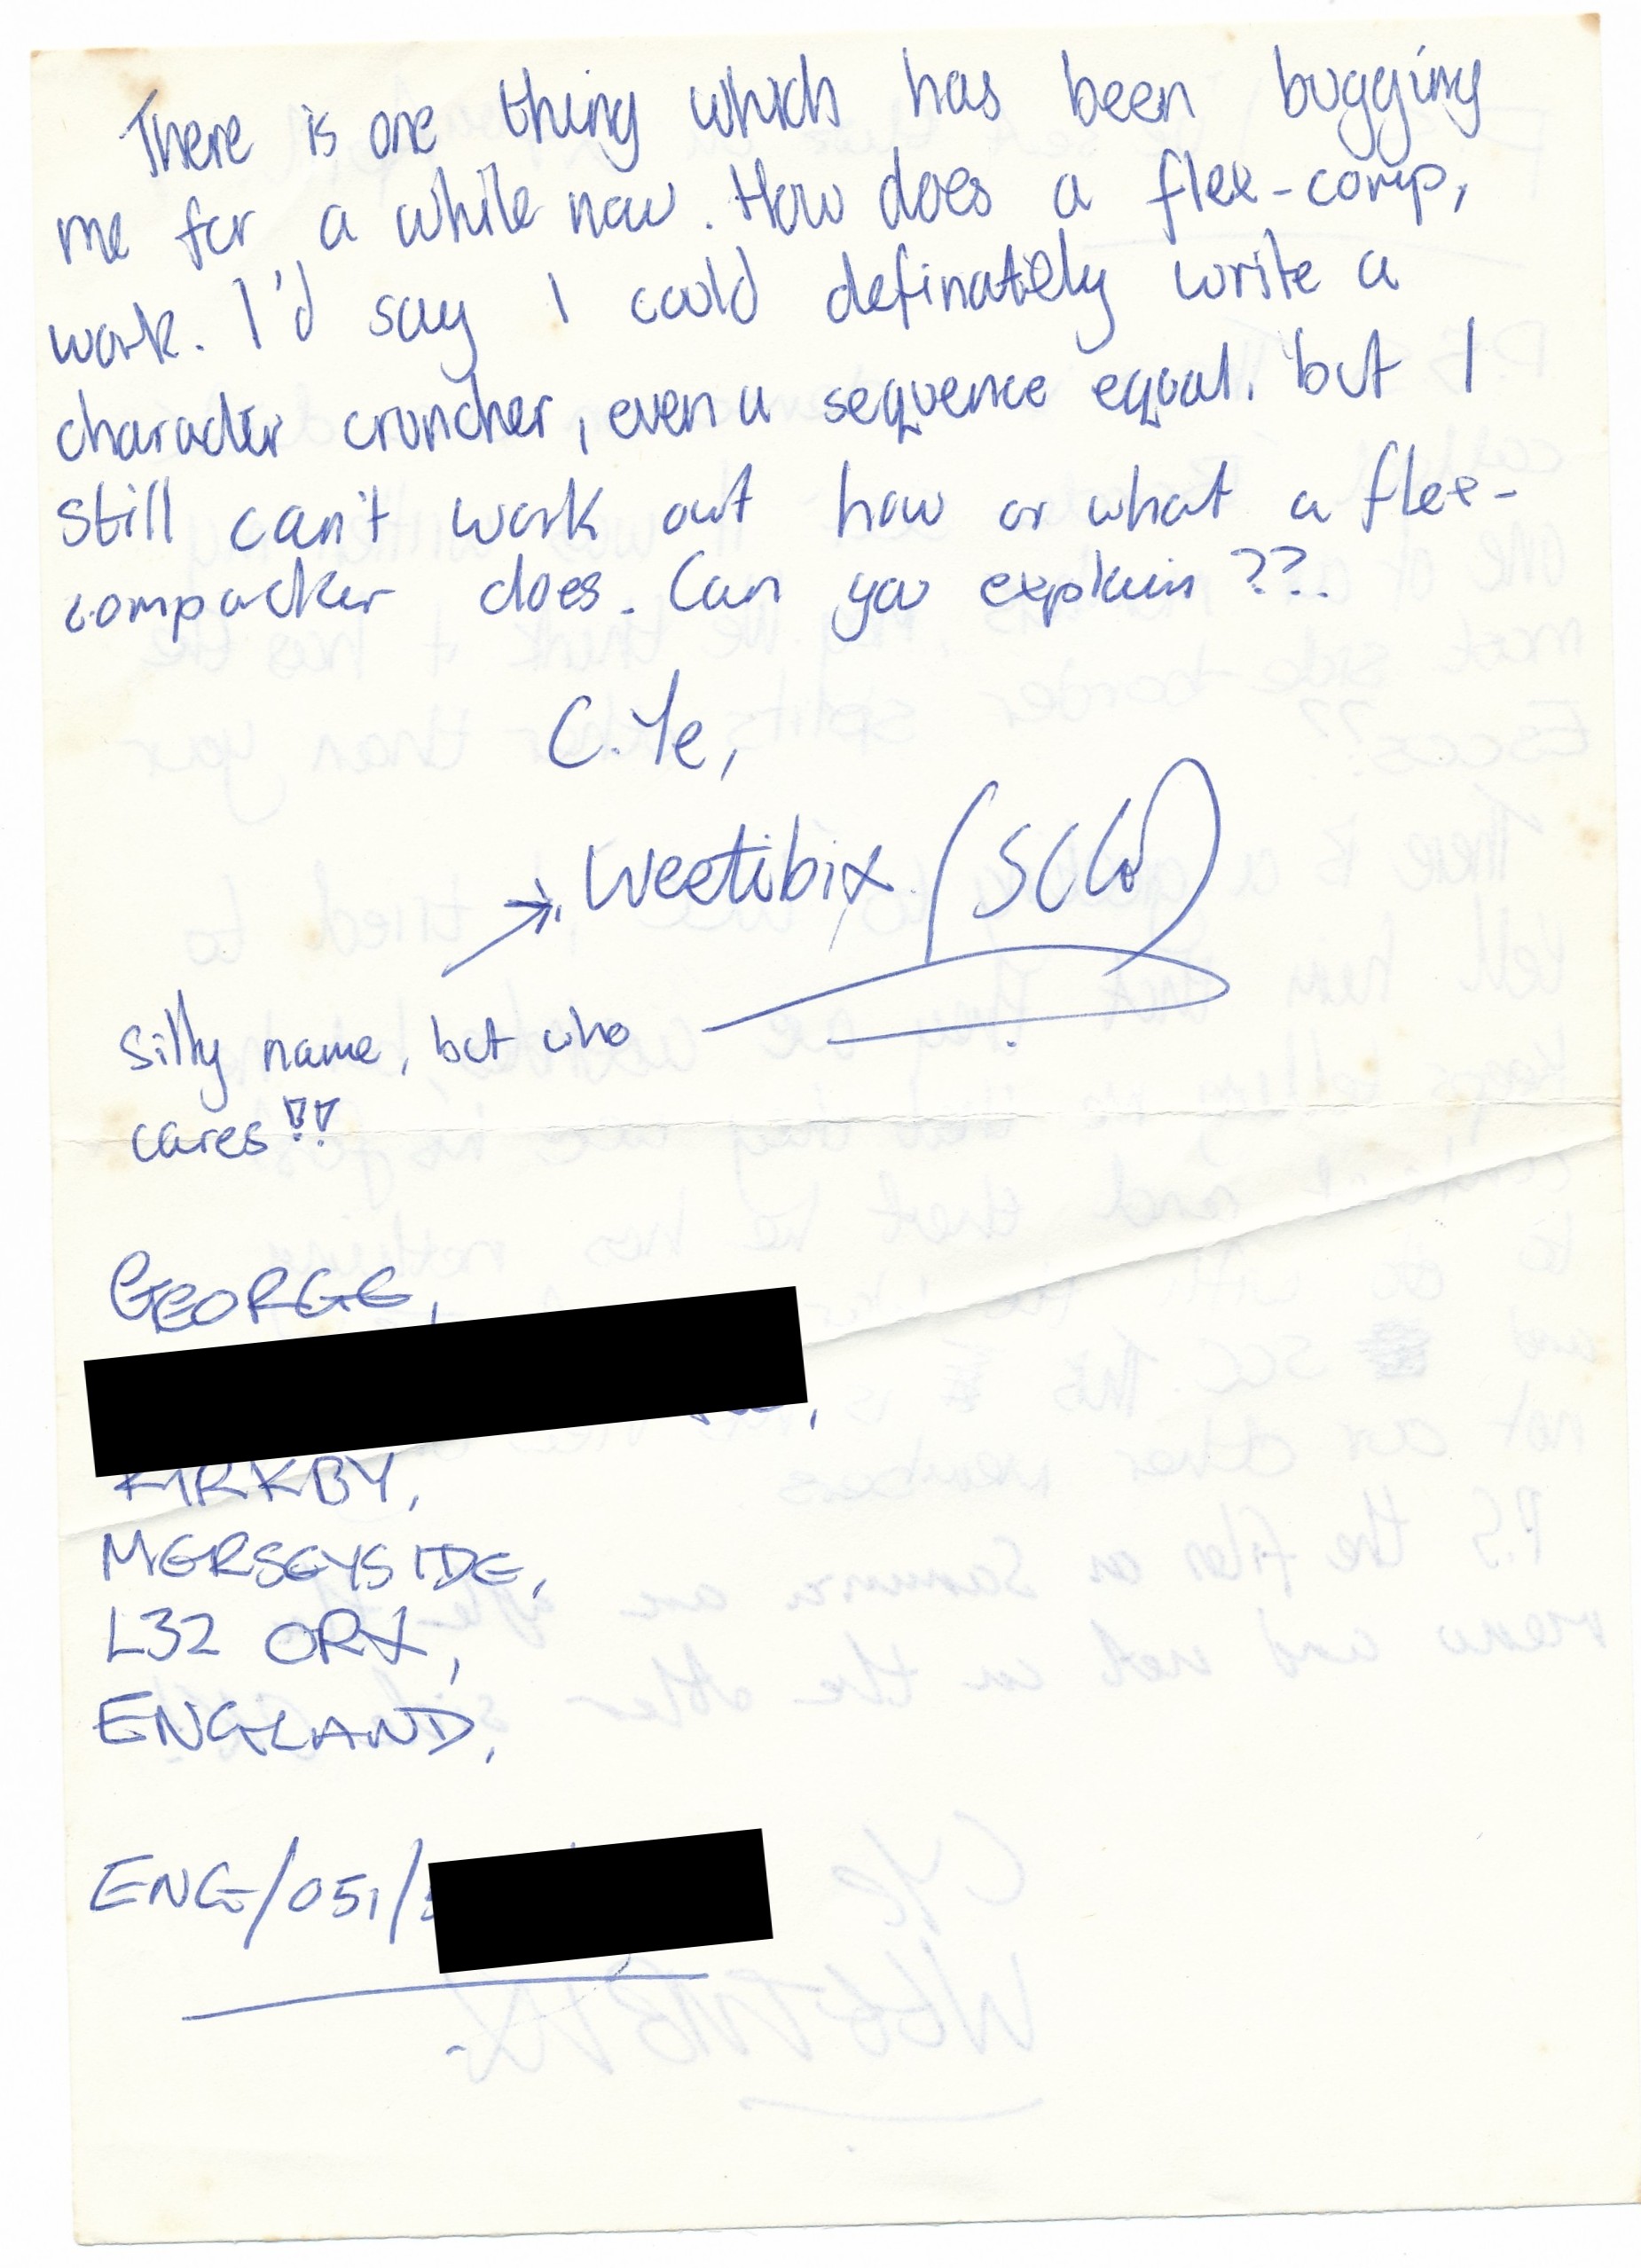 There is one thing which has been bugging
me for a while now. How does a flex-comp,
work. I'd say I could definately write a
character cruncher, even a sequence equal. but I
still can't work out how or what a flex-
compacker does. Can you explain???
C.Ye,
Weetibix (SCG)
silly name, but who
cares!!
GEORGE,
KIRKBY,
MERSEYSIDE,
L32 0RX,
ENGLAND,
ENG/051/